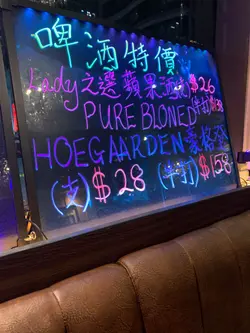 啤酒特價
Lady之選蘋果酒 $26
PURE BLONED
HOEGAARDEN 豪格登
(支) $28 (半打) $158